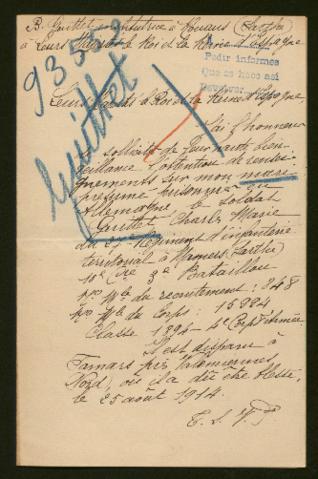 B. Guittet institutrice à Rouans (Sarthe)
à Leurs Majestés le Roi et la Reine d'Espagne
Pedir informes
Que se hace así
Devolver
93
Guittet
Leurs Majestés le Roi et la Reine d'Espagne,
J'ai l'honneur
solliciter de leur haute bien-
veillance l'obtention de rensei-
gnements sur mon mari
présumé prisonnier en
Allemagne le soldat
Guittet Charles Marie
du 27e Régiment d'infanterie
territorial à Mamers (Sarthe)
11e Cie 3e Bataillon
No Mle du recrutement : 348
No Mle du Corps : 15884
Classe 1894 - 4e Corps d'Armée
Il est disparu à
Famars près Valenciennes,
Nord), où il a dû être blessé,
le 25 août 1914.
T. S. V. P.